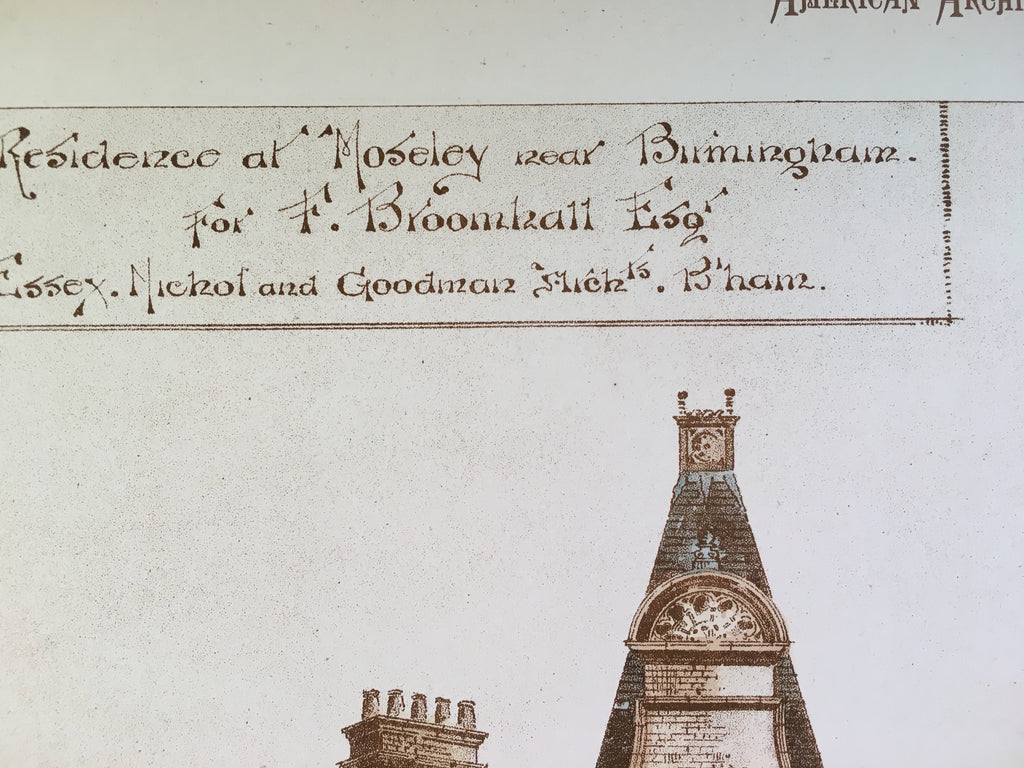 AMERICAN ARCHI
Residence at Moseley near Birmingham.
for F. Broomhall Esqr
Essex. Nichol and Goodman Archts. B'ham.